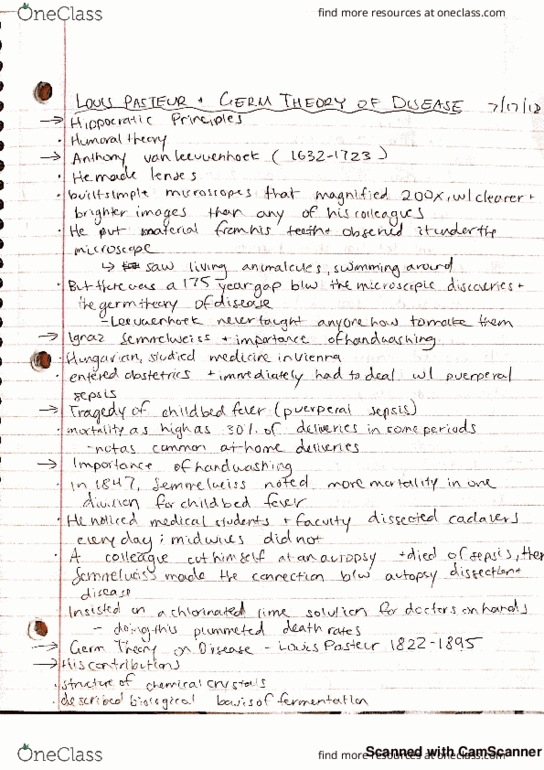 OneClass
find more resources at oneclass.com
LOUIS PASTEUR + GERM THEORY OF DISEASE 7/17/18
→ Hippocratic Principles
· Humoral theory
→ Anthony van Leeuwenhoek (1632-1723)
· He made lenses
· built simple microscopes that magnified 200x, w/ clearer +
brighter images than any of his colleagues
· He put material from his teeth + observed it under the
microscope
↳ saw living animalcules, swimming around
· But there was a 175 year gap b/w the microscopic discoveries +
the germ theory of disease
- Leeuwenhoek never taught anyone how to make them
→ Ignaz Semmelweiss + importance of handwashing
· Hungarian, studied medicine in Vienna
· entered obstetrics + immediately had to deal w/ puerperal
sepsis
→ Tragedy of childbed fever (puerperal sepsis)
· mortality as high as 30% of deliveries in some periods
- not as common at-home deliveries
→ Importance of handwashing
· In 1847, Semmelweiss noted more mortality in one
division for childbed fever
· He noticed medical students + faculty dissected cadavers
every day; midwives did not
· A colleague cut himself at an autopsy + died of sepsis, then
Semmelweiss made the connection b/w autopsy dissection +
disease
Insisted on a chlorinated lime solution for doctors on hands
- doing this plummeted death rates
→ Germ Theory on Disease - Louis Pasteur 1822-1895
→ His contributions
· structure of chemical crystals
· described biological basis of fermentation
OneClass
find more resources at oneclass.com
Scanned with CamScanner